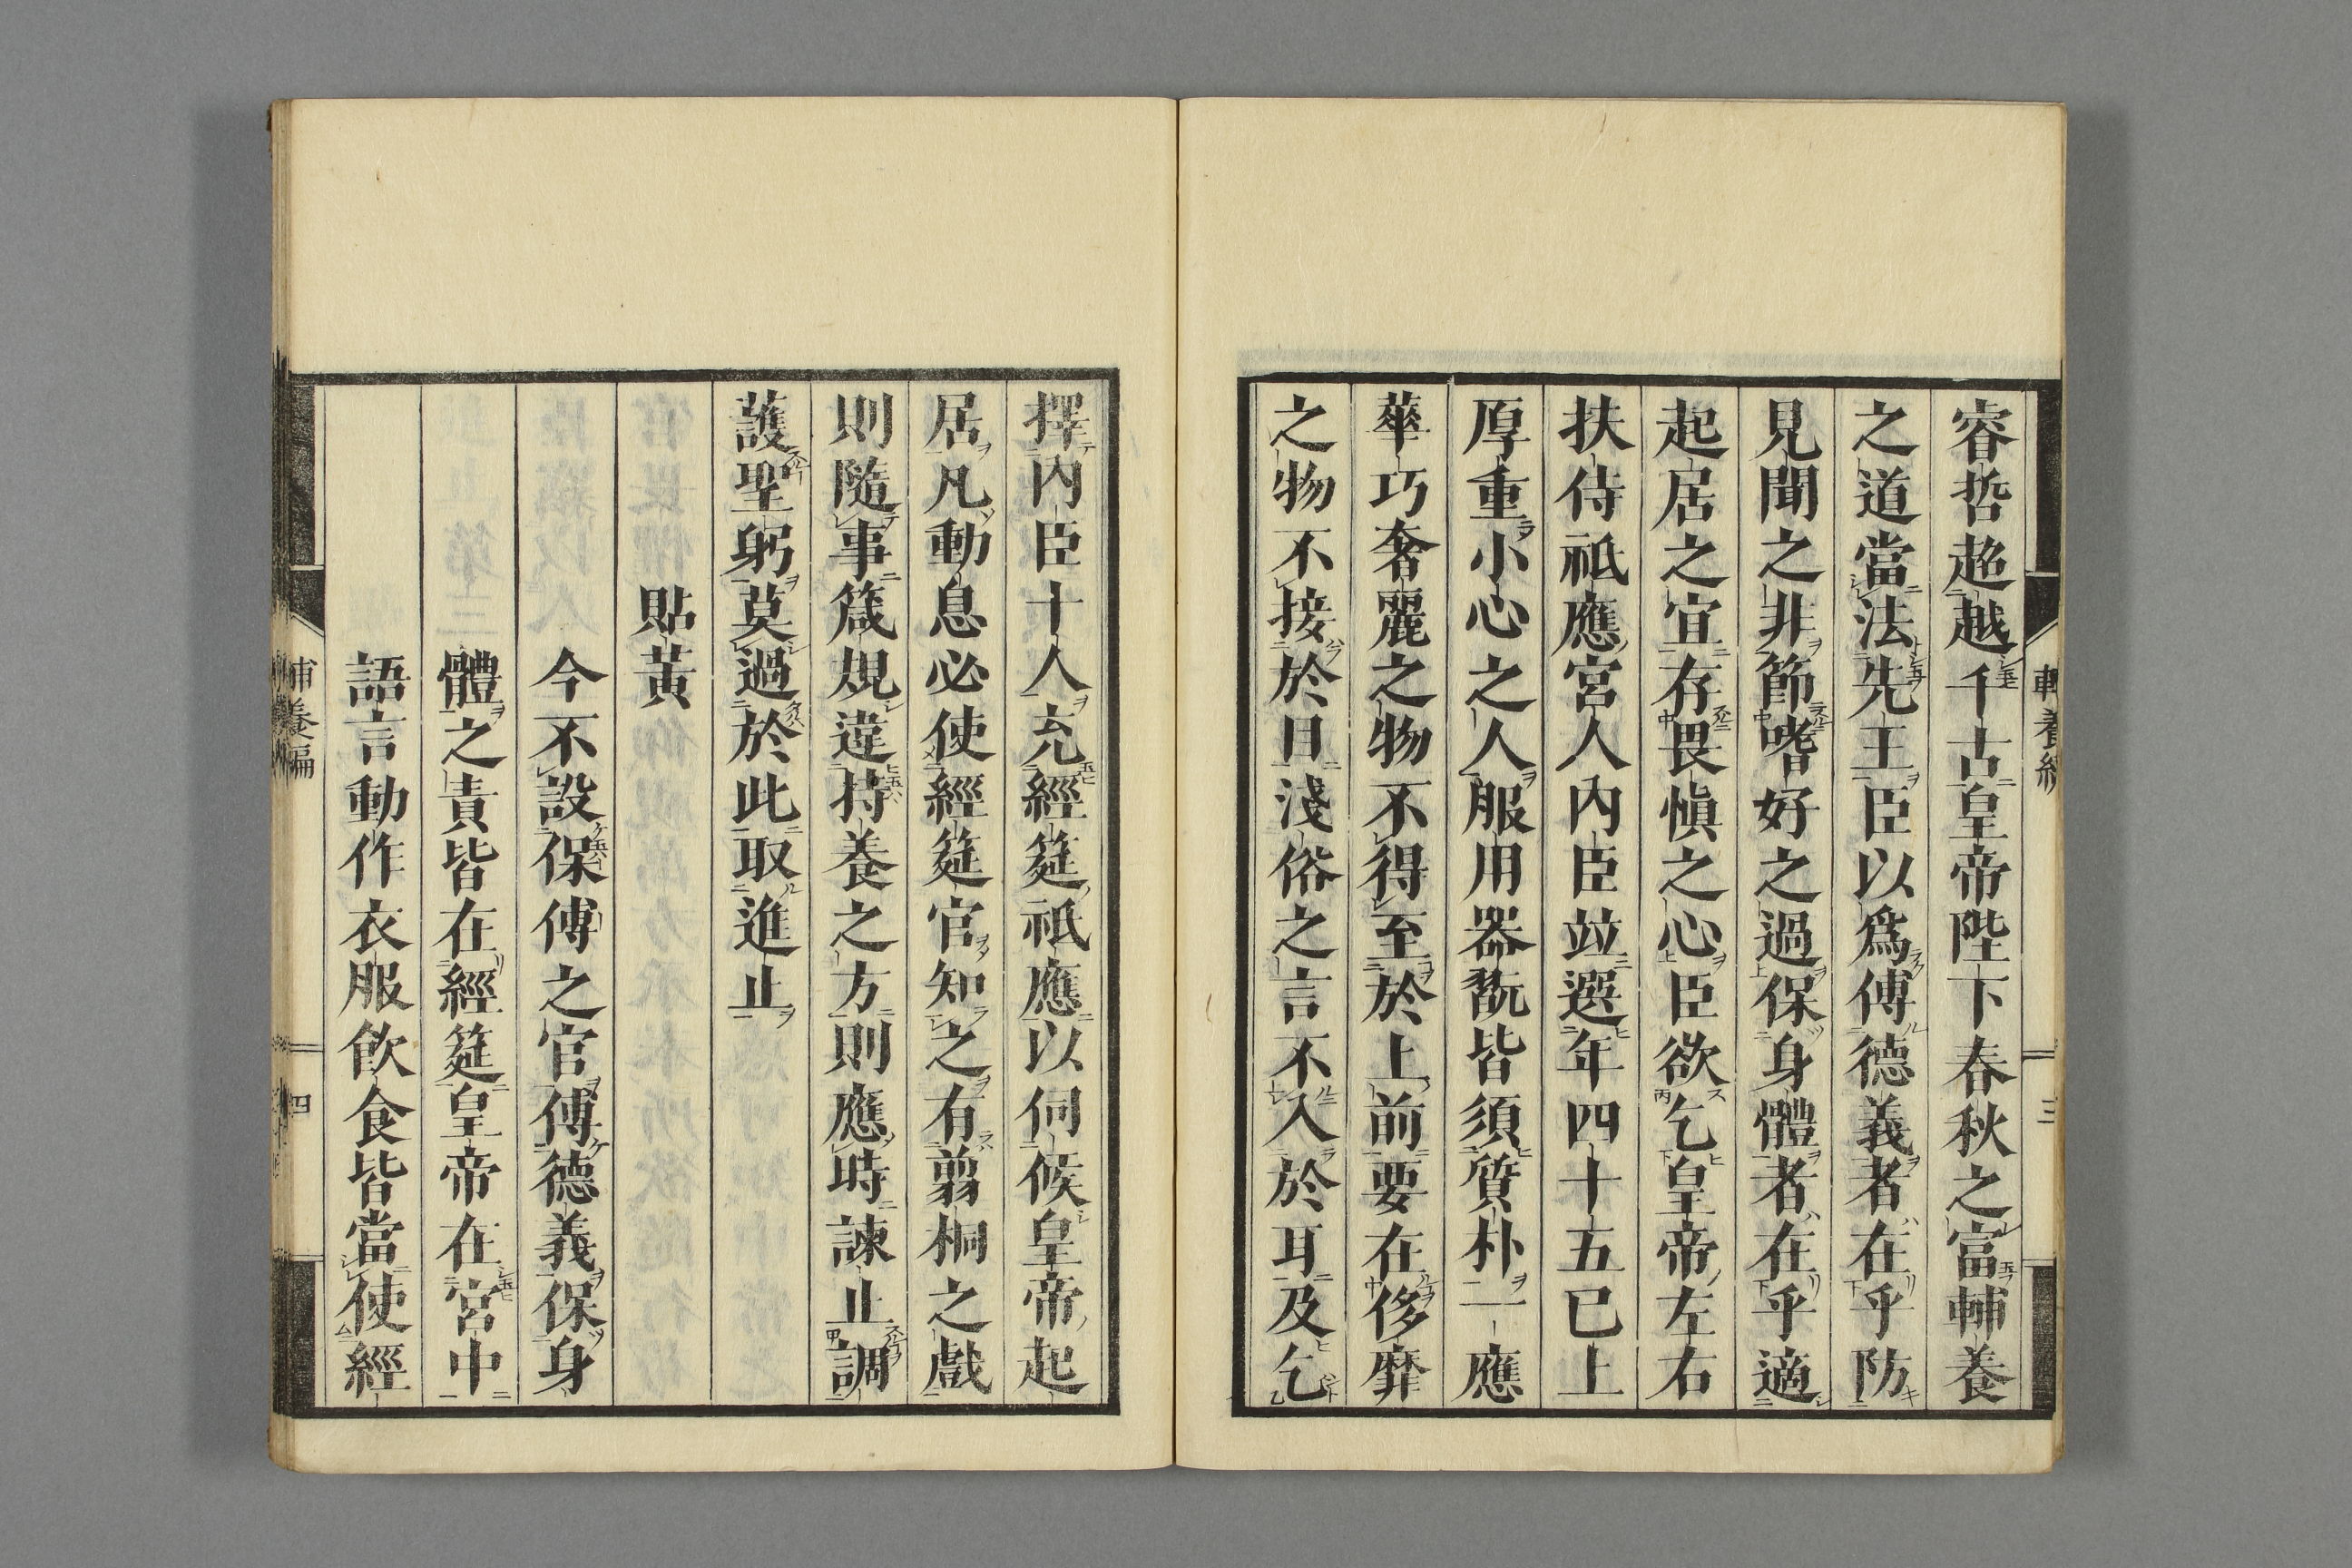 睿哲超越千古皇帝陛下春秋之富輔養
之道當法先王臣以爲傅德義者在乎防
見聞之非節嗜好之過保身體者在乎適
起居之宜存畏愼之心臣欲乞皇帝左右
扶侍祗應宮人內臣竝選年四十五已上
厚重小心之人服用器翫皆須質朴一應
華巧奢麗之物不得至於上前要在侈靡
之物不接於目淺俗之言不入於耳及乞
擇內臣十人充經筵祗應以伺候皇帝起
居凡動息必使經筵官知之有翦桐之戲
則隨事箴規違持養之方則應時諫止調
護聖躬莫過於此取進止
貼黃
今不設保傅之官傅德義保身
體之責皆在經筵皇帝在宮中
語言動作衣服飲食皆當使經
輔養編
四
三